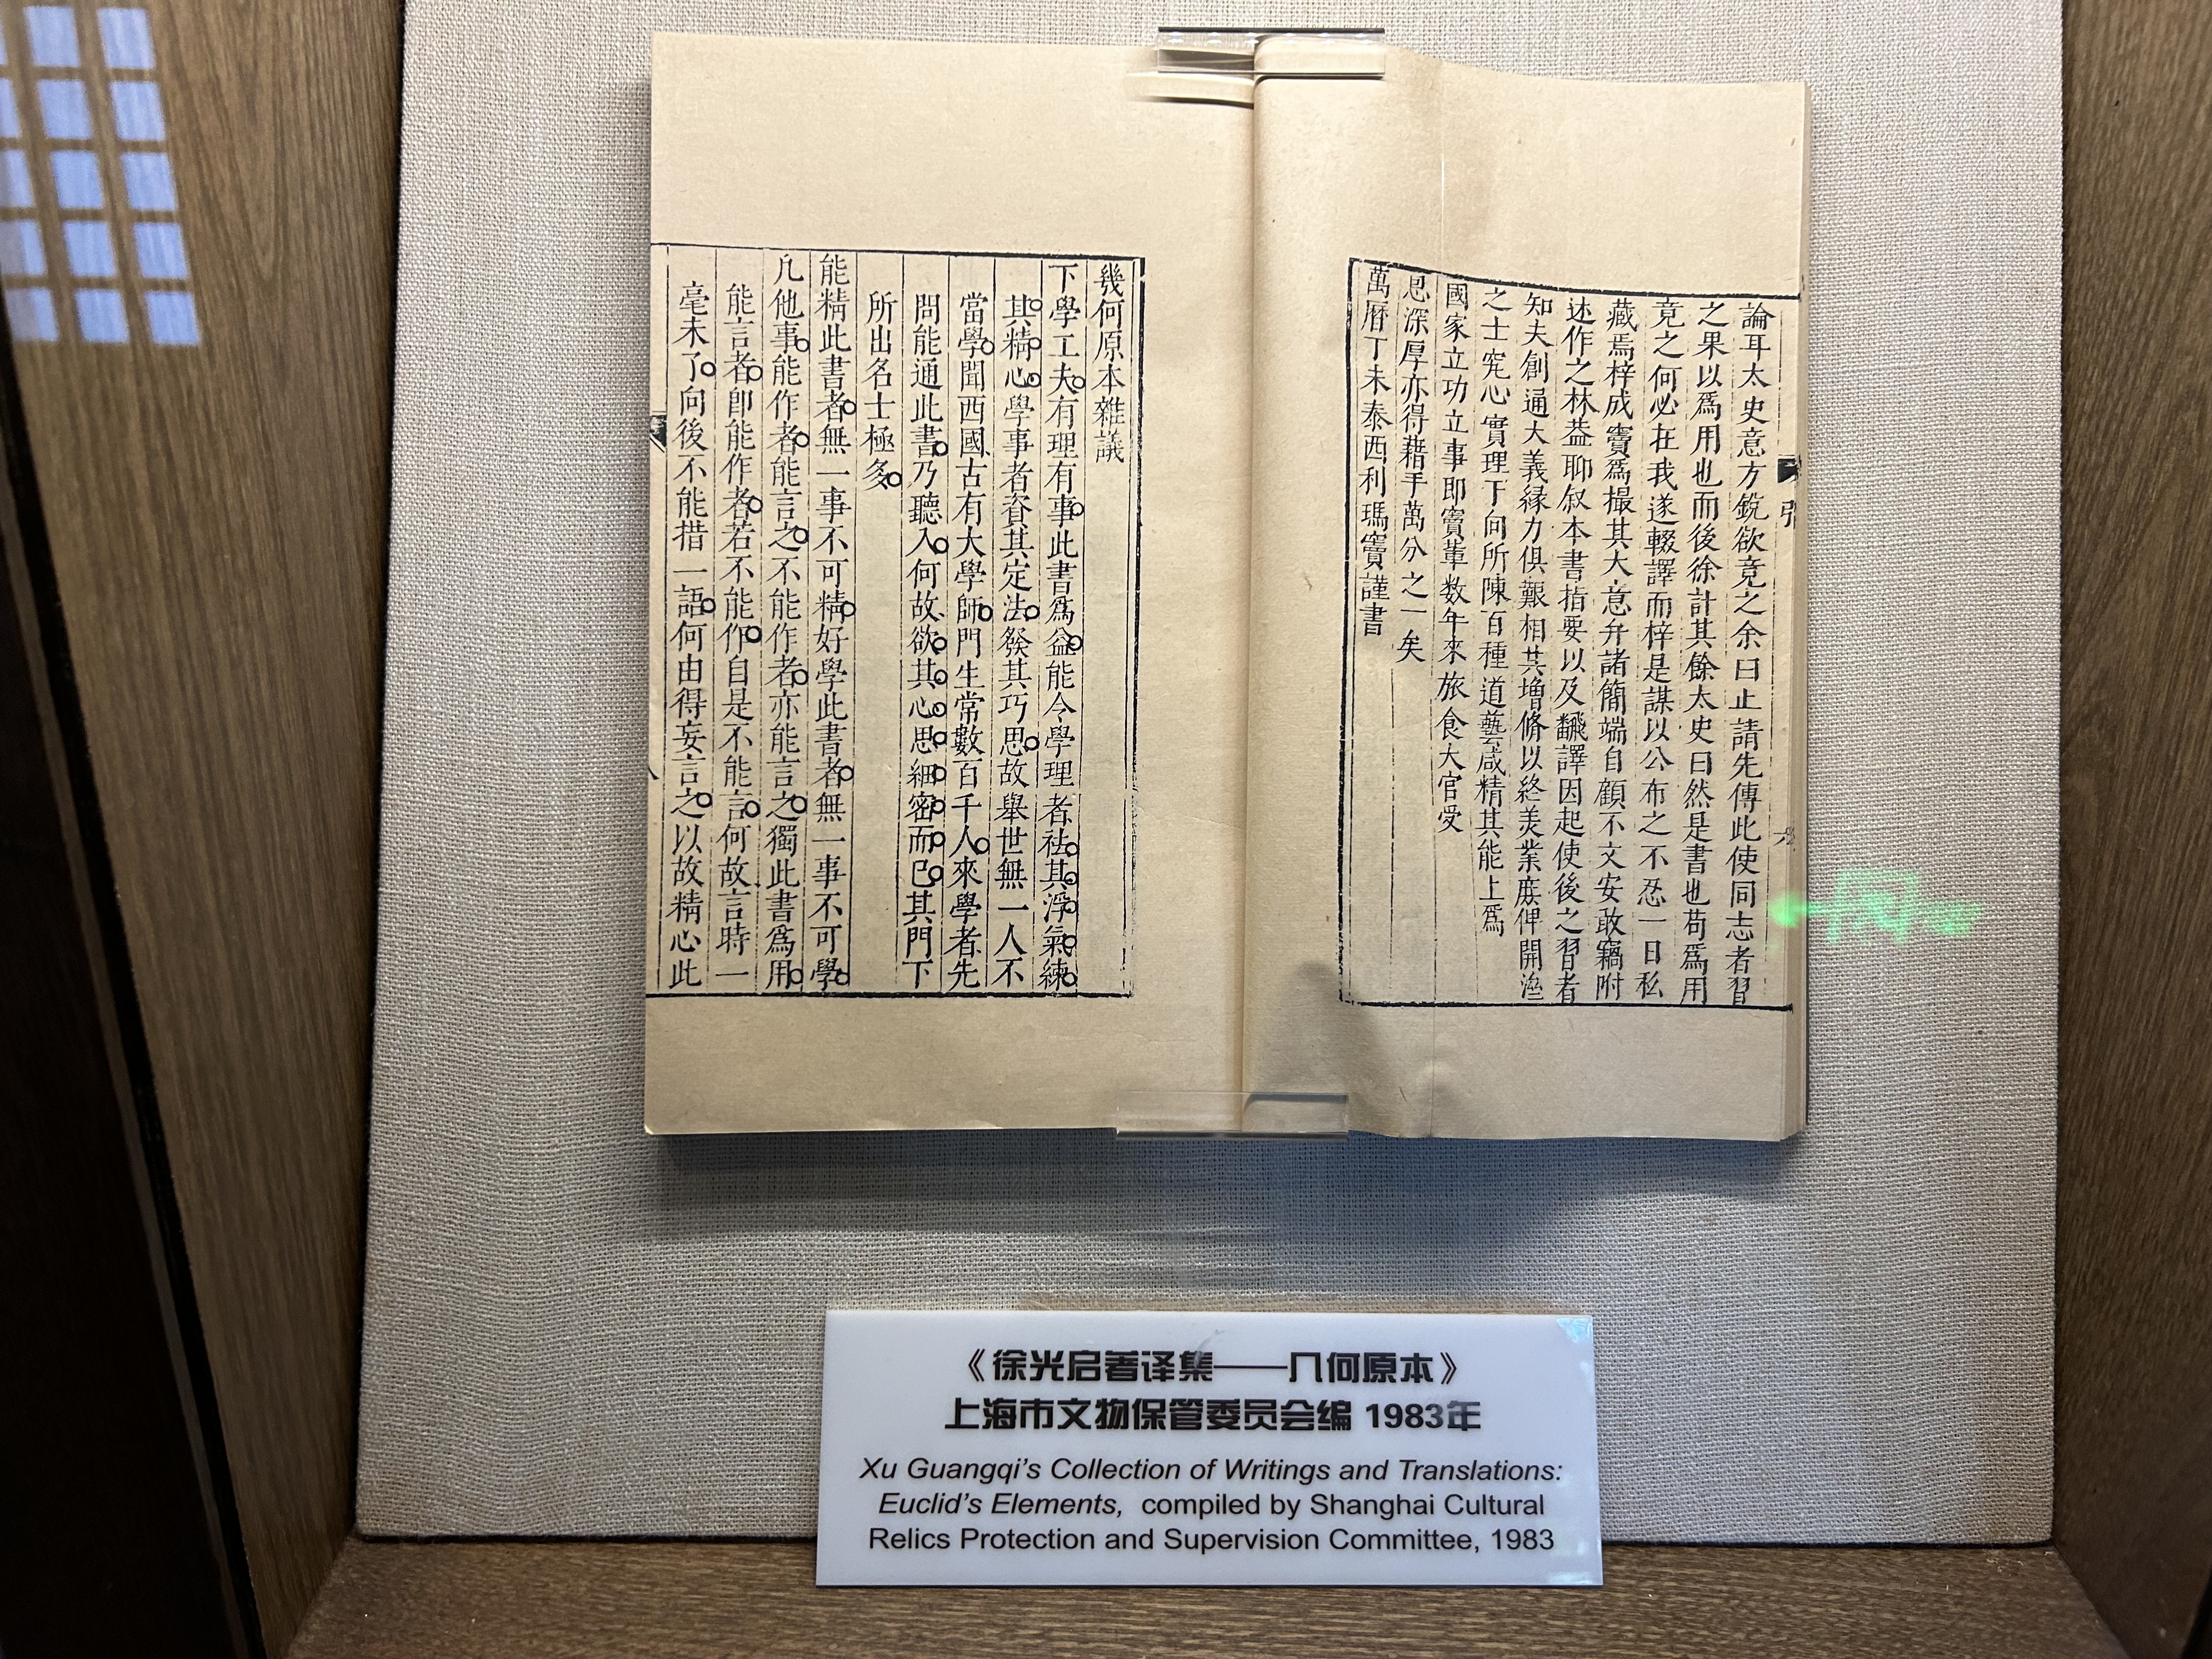 論耳太史意方銳欲竟之余曰止請先傳此使同志者習
之果以爲用也而後徐計其餘太史曰然是書也苟爲用
竟之何必在我遂輟譯而梓是謀以公布之不忍一日私
藏焉梓成竇爲撮其大意弁諸簡端自顧不文安敢竊附
述作之林葢聊叙本書指要以及飜譯因起使後之習者
知夫創通大義緣力俱艱相共增修以終美業庶俾開濟
之士究心實理于向所陳百種道藝咸精其能上爲
國家立功立事即竇軰数年來旅食大官受
恩深厚亦得藉手萬分之一矣
萬曆丁未泰西利瑪竇謹書
幾何原本雜議
下學工夫有理有事此書爲益能令學理者祛其浮氣練
其精心學事者資其定法發其巧思故舉世無一人不
當學聞西國古有大學師門生常數百千人來學者先
問能通此書乃聽入何故欲其心思細密而已其門下
所出名士極多
能精此書者無一事不可精好學此書者無一事不可學
凡他事能作者能言之不能作者亦能言之獨此書爲用
能言者即能作者若不能作自是不能言何故言時一
毫未了向後不能措一語何由得妄言之以故精心此
《徐光启著译集——几何原本》
上海市文物保管委员会编 1983年
Xu Guangqi's Collection of Writings and Translations:
Euclid's Elements, compiled by Shanghai Cultural
Relics Protection and Supervision Committee, 1983